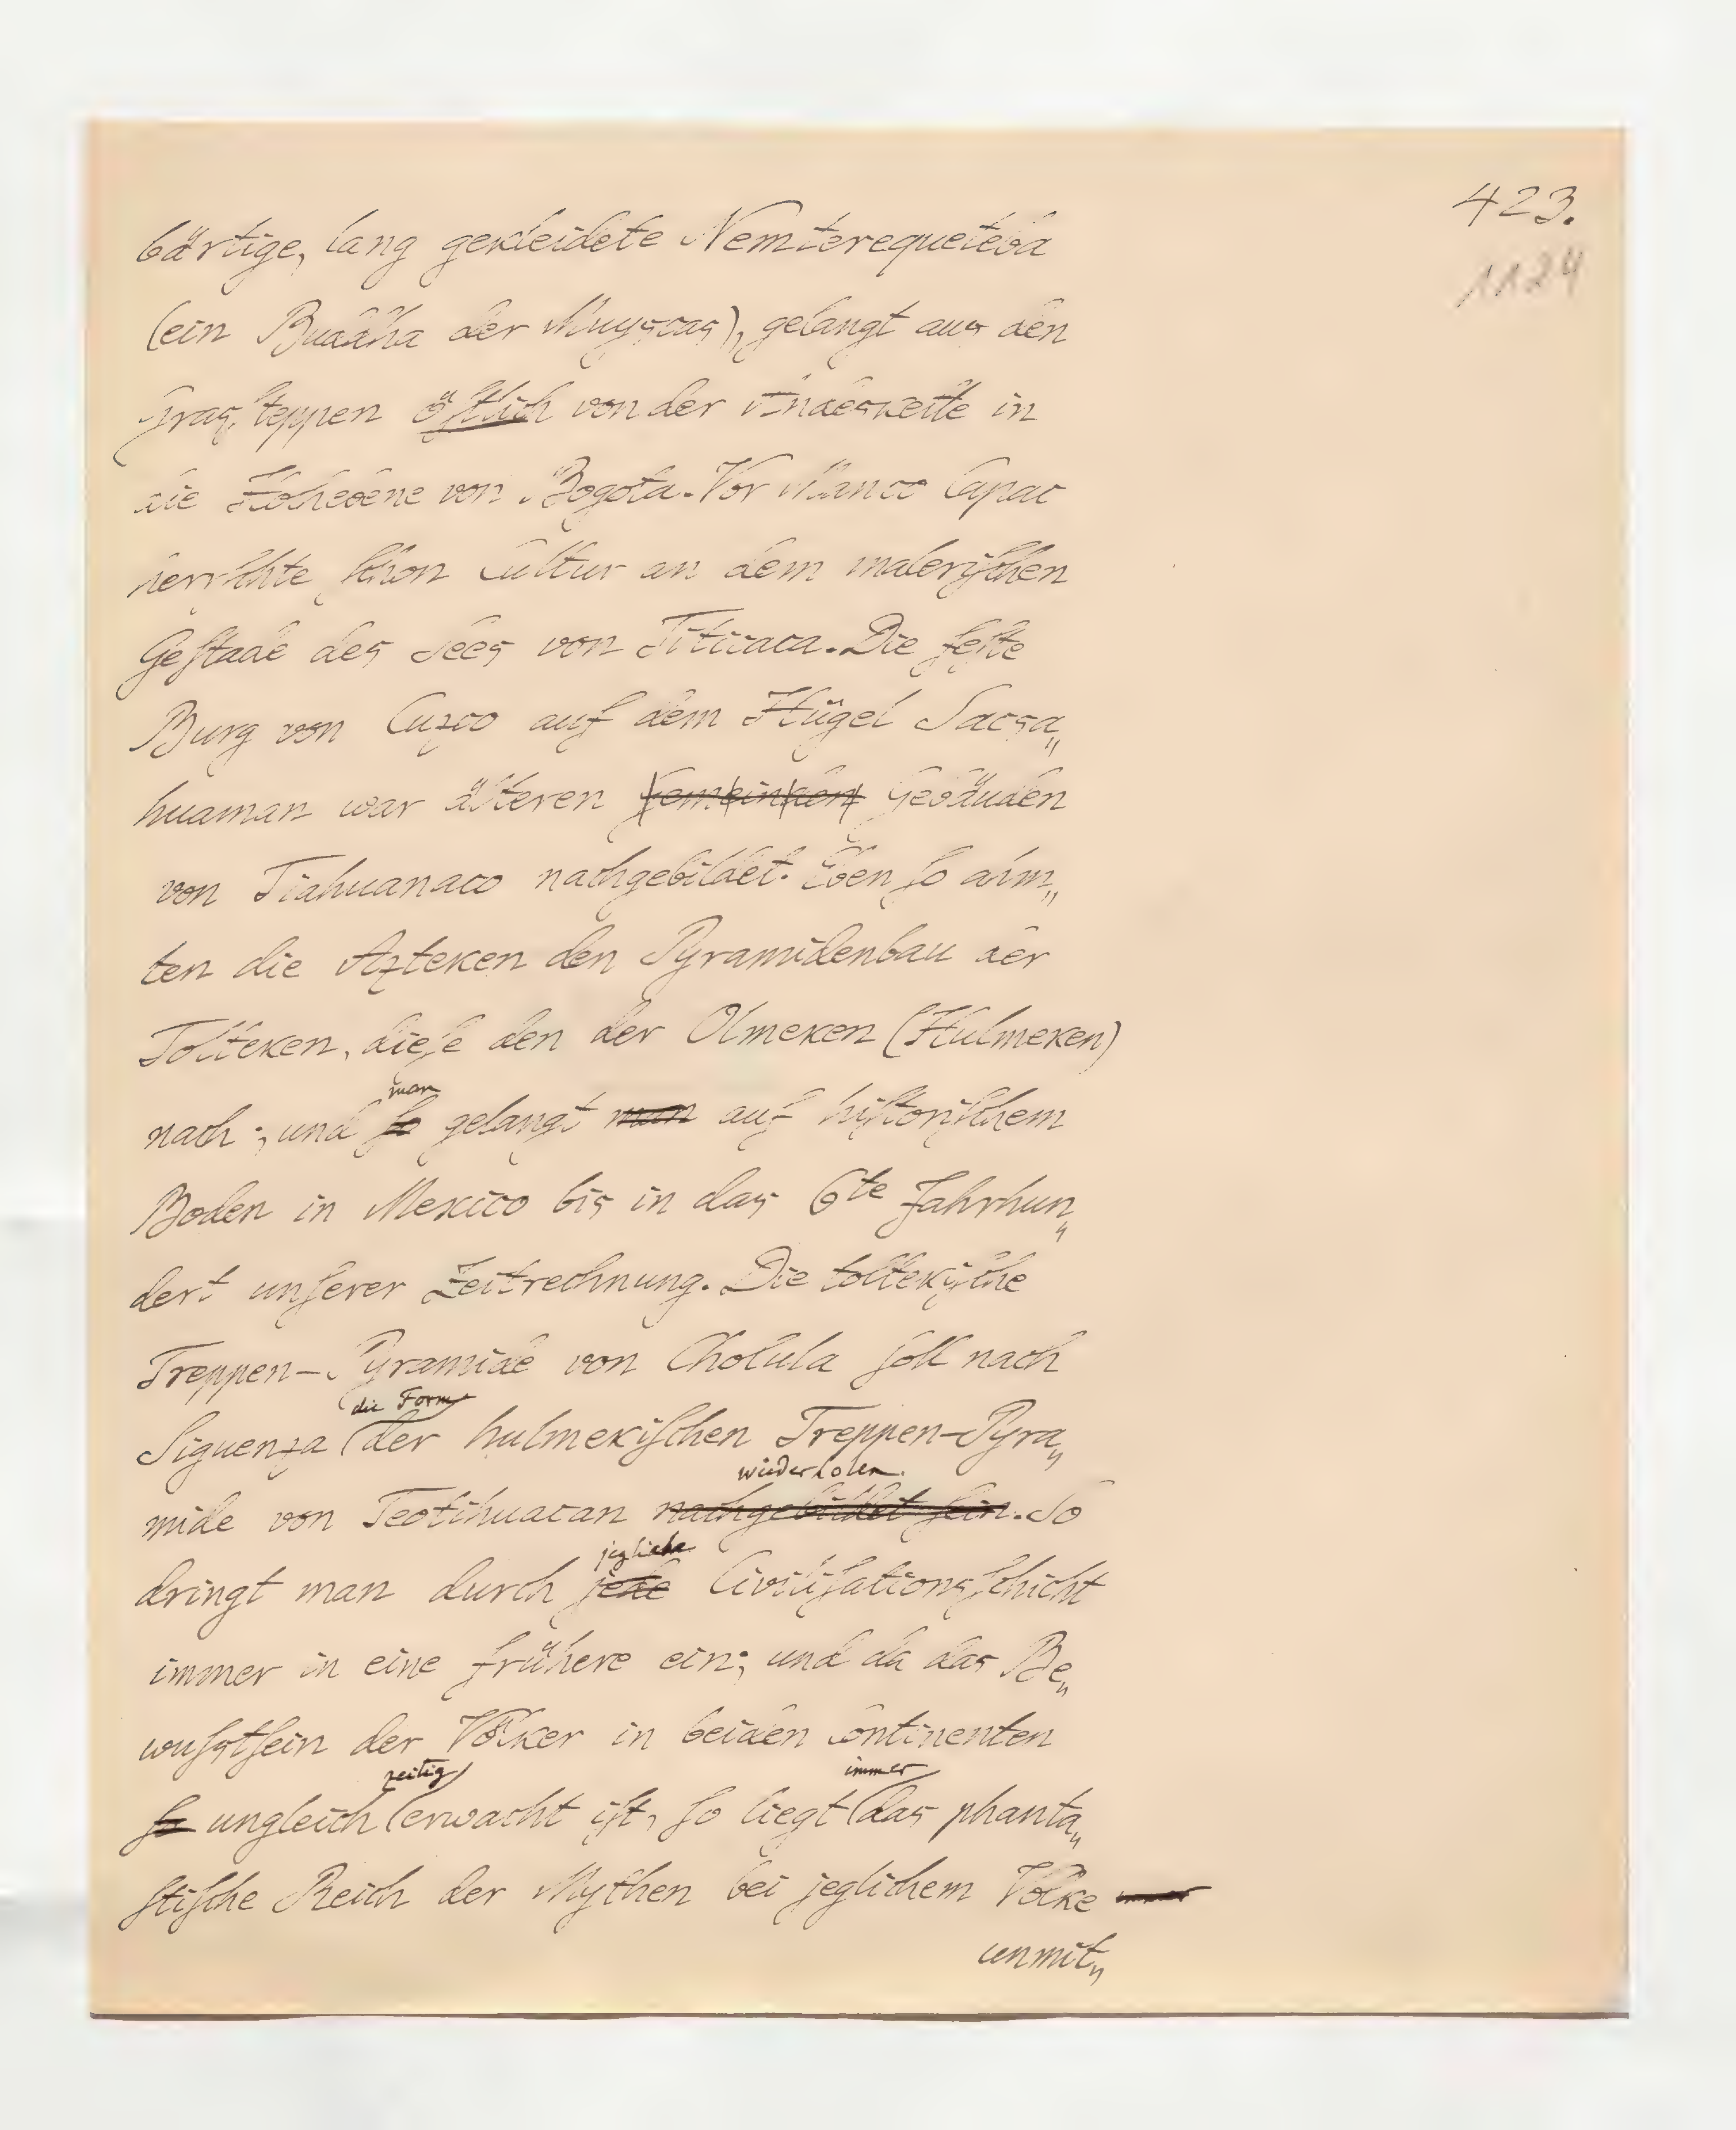 423.
1124
bärtige, lang gekleidete Nemterequeteba
(ein Buddha der Muyscas), gelangt aus den
Grasſteppen öſtlich von der Andeskette in
die Hochebene von Bogota. Vor Manco Capac
herrſchte ſchon Cultur an dem maleriſchen
Geſtade des Sees von Titicaca. Die feſte
Burg von Cuzco auf dem Hügel Sacsa„
huaman war älteren Gebäuden
von Tiahuanaco nachgebildet. Eben ſo ahm„
ten die Azteken den Pyramidenbau der
Tolteken, dieſe den der Olmeken (Hulmeken)
man
nach; und ſo gelangt man auf hiſtoriſchem
Boden in Mexico bis in das 6te Jahrhun„
dert unſerer Zeitrechnung. Die tolteKiſche
Treppen-Pyramide von Cholula ſoll nach
die Form
Siguenza (der hulmekiſchen Treppen-Pyra„
wiederholen.
mide von Teotihuacan nachgebildet ſein. So
jegliche
dringt man durch jede Civiliſationsſchicht
immer in eine frühere ein; und da das Be„
wuſstſein der Völker in beiden Continenten
zeitig immer
ſo ungleich (erwacht iſt, ſo liegt (das phanta„
ſtiſche Reich der Mythen bei jeglichem Volke immer
unmit„